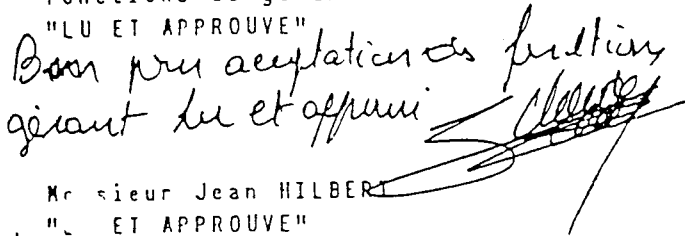 "LU ET APPROUVE"
Bon pour acceptation des fonctions
gérant Lu et approuvé
Mr sieur Jean HILBERT
ET APPROUVE"